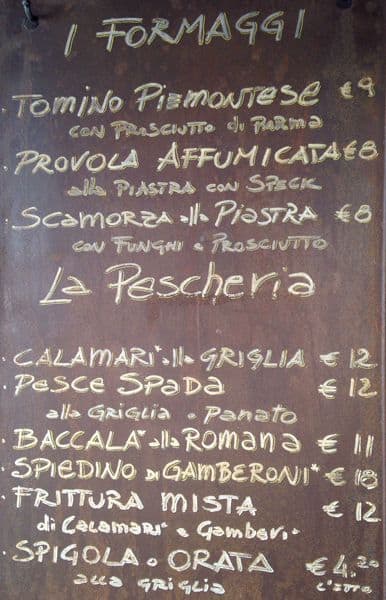 I FORMAGGI
· TOMINO PIEMONTESE €9
CON PROSCIUTTO di PARMA
· PROVOLA AFFUMICATA €8
alla PIASTRA CON SPECK
· SCAMORZA alla PIASTRA €8
CON FUNGHI e PROSCIUTTO
La Pescheria
· CALAMARI* alla GRIGLIA € 12
· PESCE SPADA € 12
alla GRIGLIA o Panato
· BACCALA* alla Romana € 11
· SPIEDINO di GAMBERONI* € 18
· FRITTURA MISTA € 12
di Calamari* e Gamberi*
· SPIGOLA o ORATA € 4.20
alla GRIGLIA L'etto